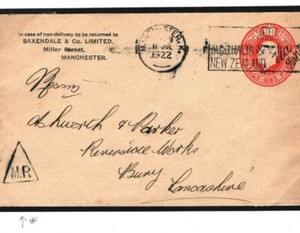 In case of non-delivery to be returned to
BAXENDALE & Co. LIMITED,
Miller Street,
MANCHESTER.
MANCHESTER
1922
AUSTRALIA &
NEW ZEALAND
Messrs
Ashworth & Parker
Riverside Works
Bury
Lancashire
M.R.